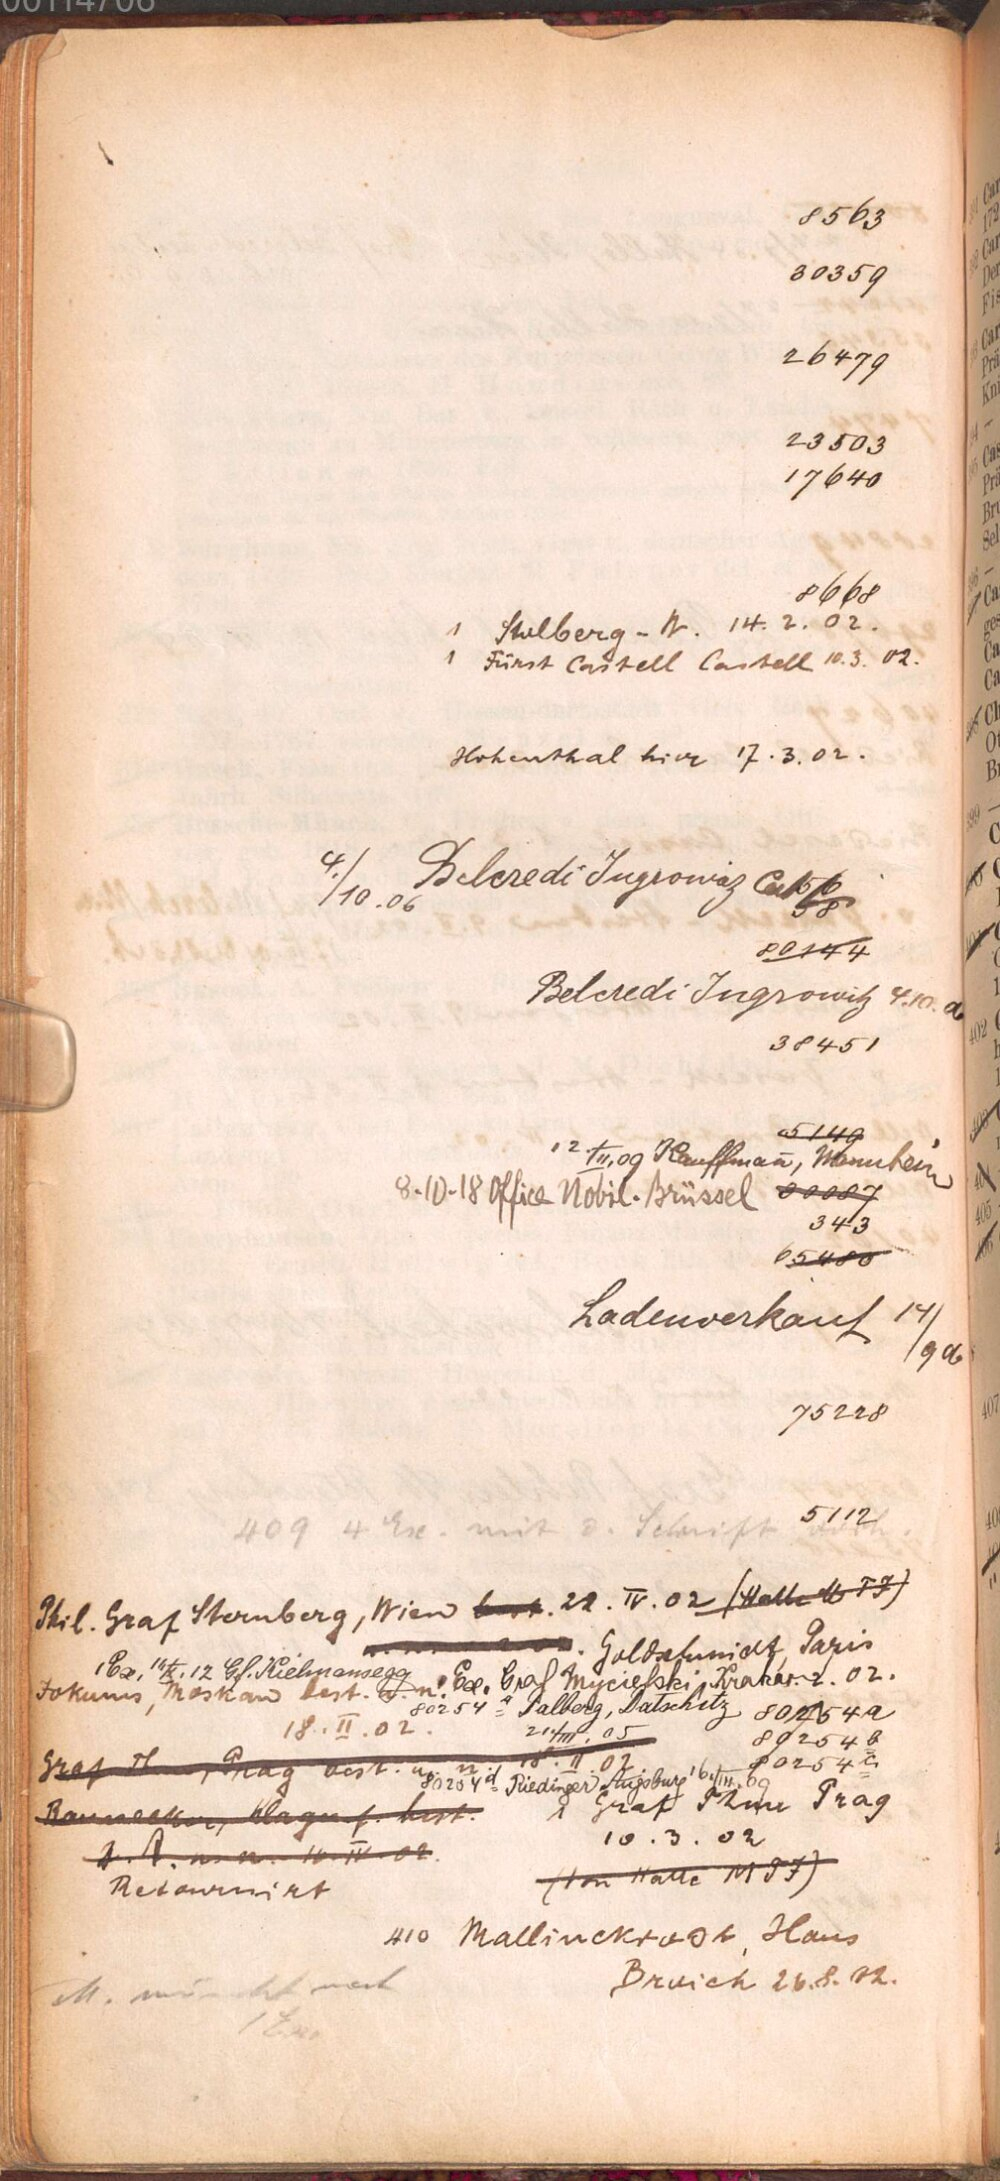 00114706
8563
30359
26479
23503
17640
8668
1 Stolberg-W. 14. 2. 02.
1 Fürst Castell Castell 10.3. 02.
Hohenthal hier 17.3.02.
4./10.06 Belcredi Ingrowitz
58
80144
Belcredi Ingrowitz 4.10.
38451
5149
12/III.09 Kauffmann, Mannheim
8-10-18 Office Nobil. Brüssel 80087
343
65480
Ladenverkauf 14/9
75228
5112
409 4 Ex. mit d. Schrift
Phil. Graf Sternberg, Wien best. 22. IV. 02 (Halle M T J)
Goldschmidt, Paris
1 Ex. 12 Gf. Kielmansegg
1 Ex. Graf Mycielski, Krakau 2. 02.
Tokums, Moskau best. u. n.
80254 a Dalberg, Datschitz 80254a
18. II. 02. 21/III. 05 80254 b
80254 c
Graf Th, Prag best. u. n. 18. II. 02
80254 d Riedinger Augsburg 16. III. 09
1 Graf Thun Prag
best.
10. 3. 02
u. n. IV. 02.
(von Halle M T J)
Retournirt
410 Mallinckrodt, Haus
Broich 26.8.12.
M. noch
1 Ex.